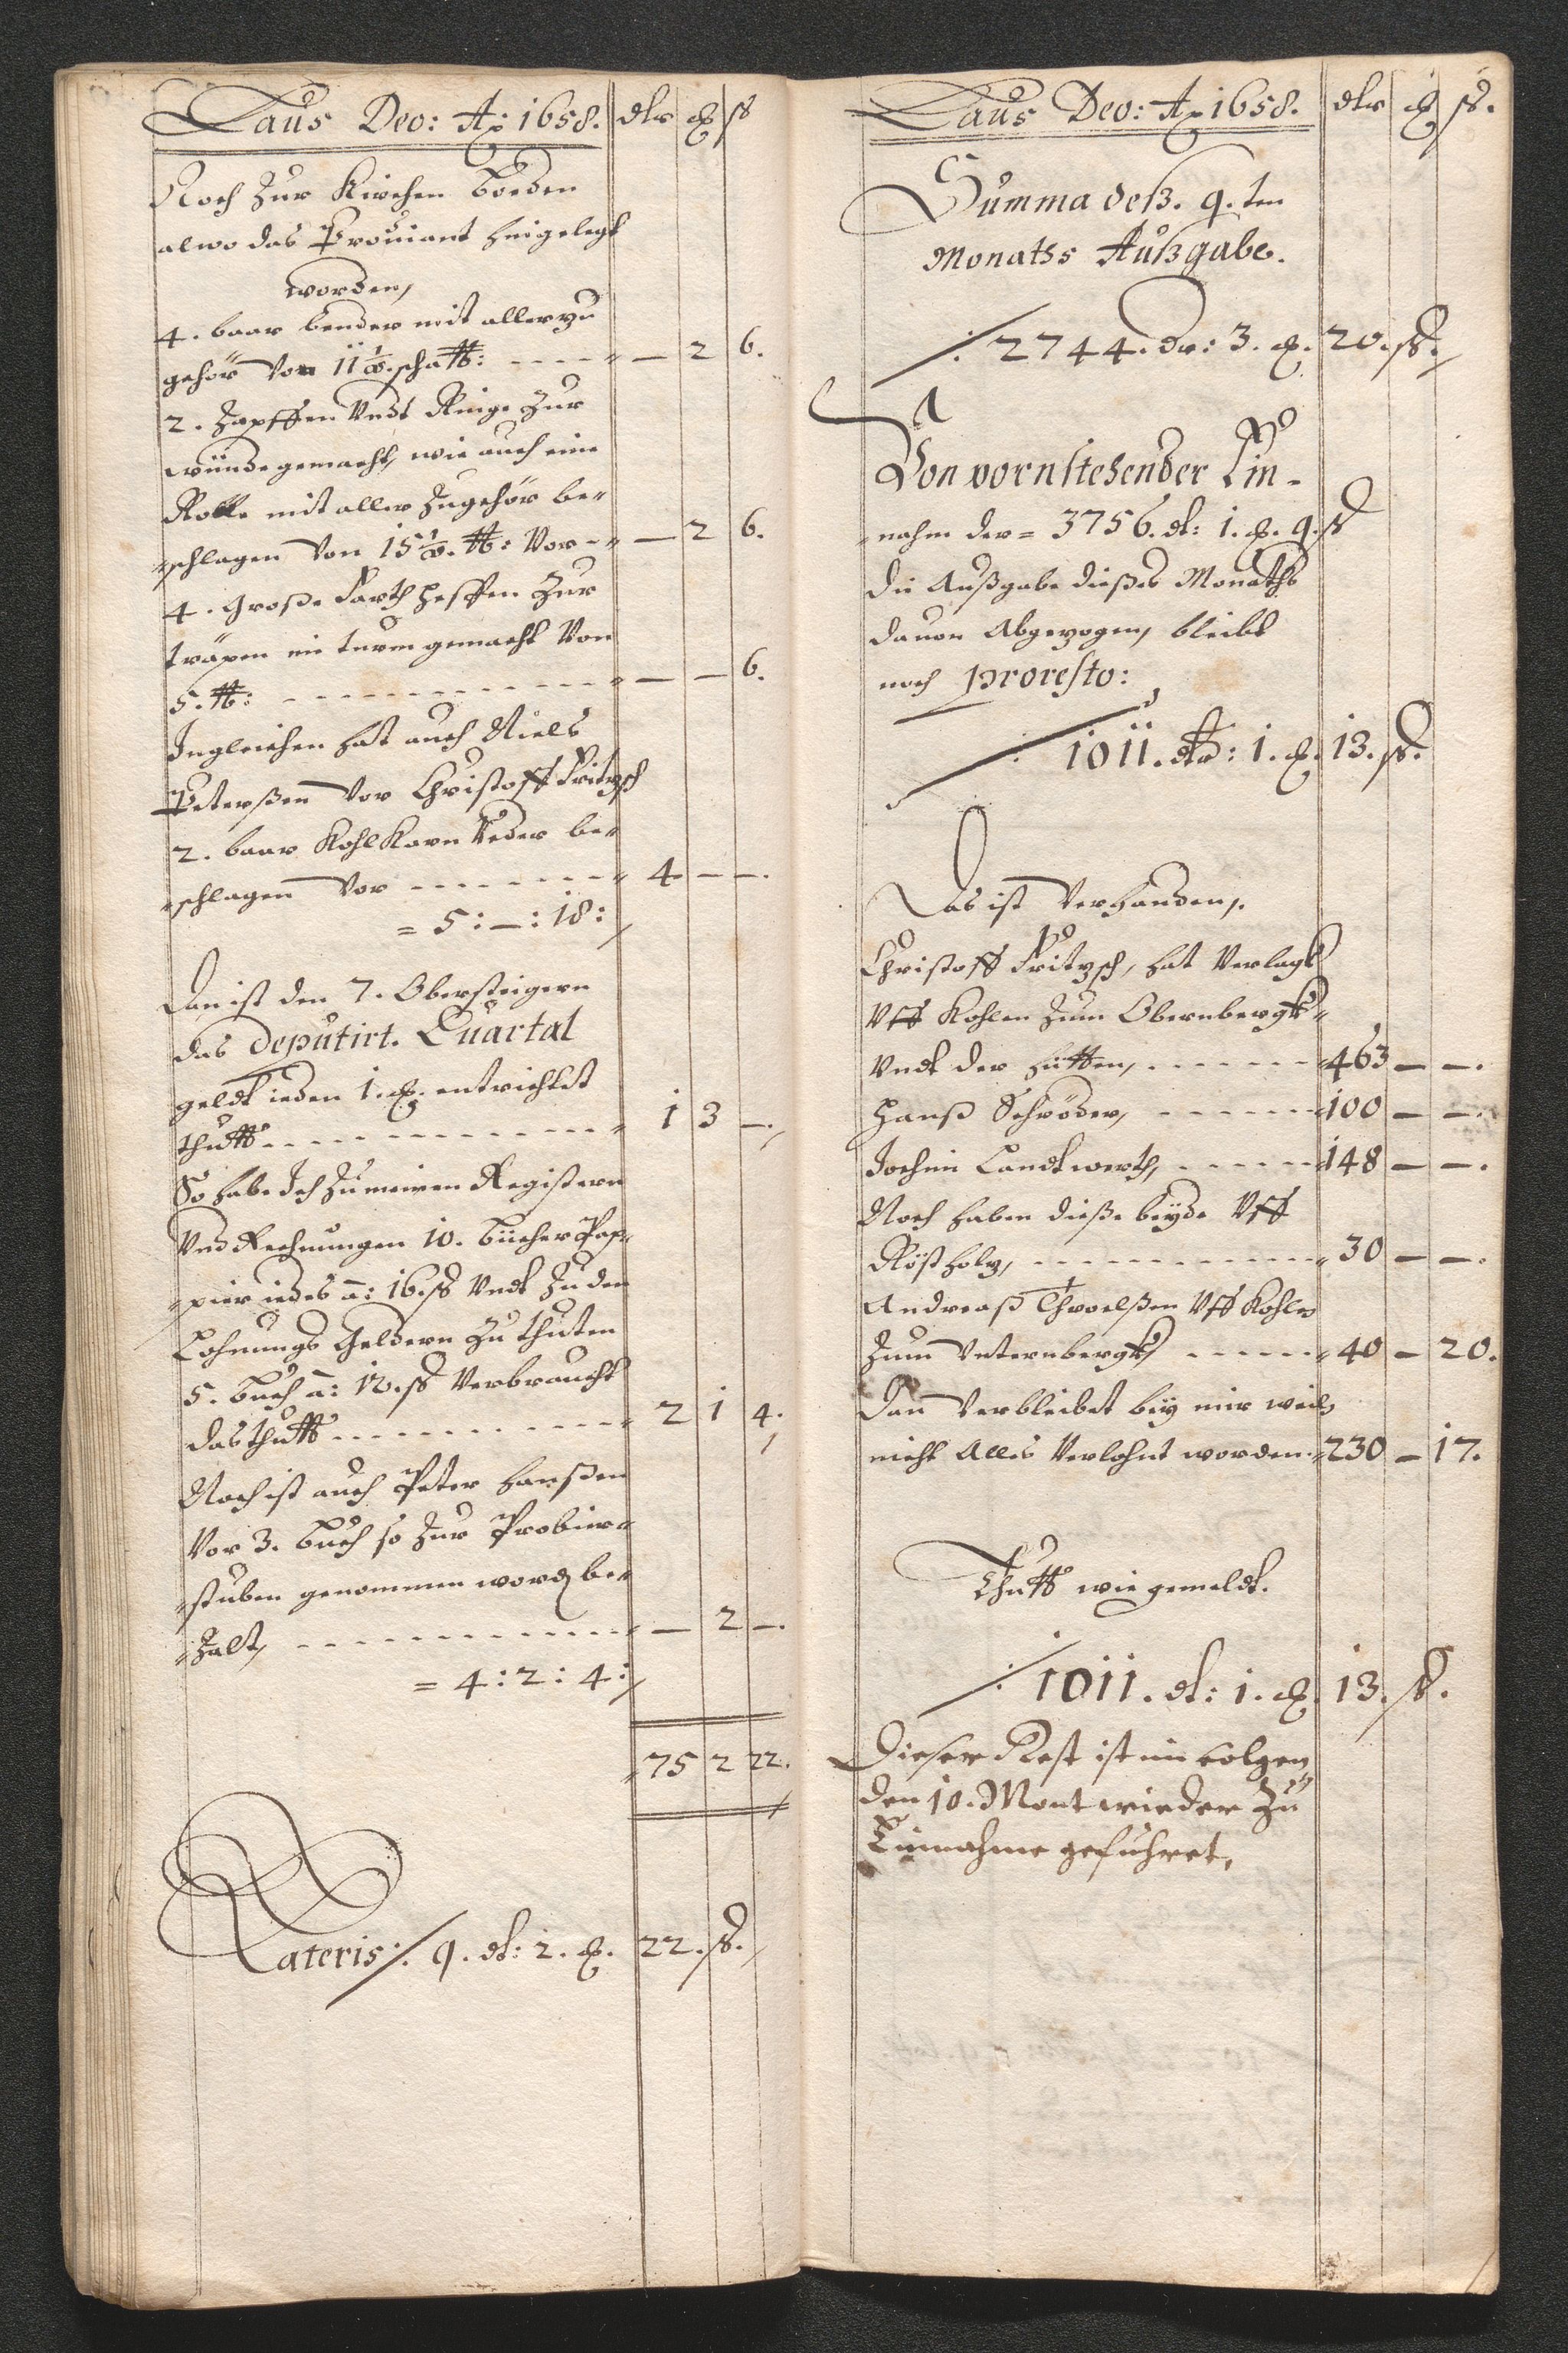 Laus Deo: Aō 1658. dlr ₰ ß
Noch Zur Kirchen Boeden
alwo das Proviant hin gelegt
worden,
4. baar bender mit aller zu
gehör von 11 ½. scha ℔: - - - - — 2 6.
2. Zapffen Undt Ringe Zur
wünde gemacht, wie auch eine
Rolle mit aller Zugehör be-
schlagen von 15 ½. ℔: Vor - - — 2 6.
4. Große Farth Heffen Zur
träpen im turm gemacht Von
5. ℔: - - - - - - - - - - - — — 6.
Ingleichen hat auch Niels
Peterßen vor Christoff Fritzsch
2. baar Kohl Karn Reder be-
schlagen vor - - - - - - - - 4 — —.
= 5: —: 18:
Dan ist den 7. Obersteigern
das Deputirt. Quartal
geldt ieden 1. entrichtet
thutt - - - - - - - - - - - 1 3 —.
So habe Ich Zu meinen Registern
Und Rechnungen 10. Bücher Pap-
pier iedes ā: 16. ß Undt Zu den
Lohnungs Geldern Zu thuten
5. Buch ā: 12. ß Verbraucht
das thutt - - - - - - - - - 2 1 4.
Noch ist auch Peter Hanßen
Vor 3. Buch so Zur Probier-
stuben genommen word be-
Zalt, - - - - - - - - - - - — 2 —.
= 4: 2: 4:
75 2 22.
Lateris ./. 9. dt: 2. 22. ß.
Laus Deo: Aō 1658. dlr ₰ ß.
Summa deß. 9.ten
Monatss Außgabe.
./. 2744. dr: 3. 20. ß.
Von vornstehender Ein-
nahm der = 3756. dt: 1. 9. ß
die Außgabe dießes Monaths
davon Abgezogen, bleibt
noch pro resto:
./. 1011. dtr: 1. 13. ß.
Das ist Verhanden,.
Christoff Fritzsch, hat Verlagt
Uff Kohlen Zum Obernbergk
Undt der hütten, - - - - - - 463 — —.
Hanß Schröder, - - - - - - 100 — —.
Jochim Landtwerth, - - - - - 148 — —.
Noch haben dieße beyde Uff
Röstholtz, - - - - - - - - - 30 — —.
Andreaß Throelßen Uff Kohlen
Zum Unternbergk, - - - - - - 40 — 20.
Dan Verbleibet bey mir weil
nicht Alles Verlohnt worden - 230 — 17.
Thutt wie gemeldt.
./. 1011. dt: 1. 13. ß.
Dieser Rest ist im folgen
den 10. Mont wieder Zu
Einnahme geführet,